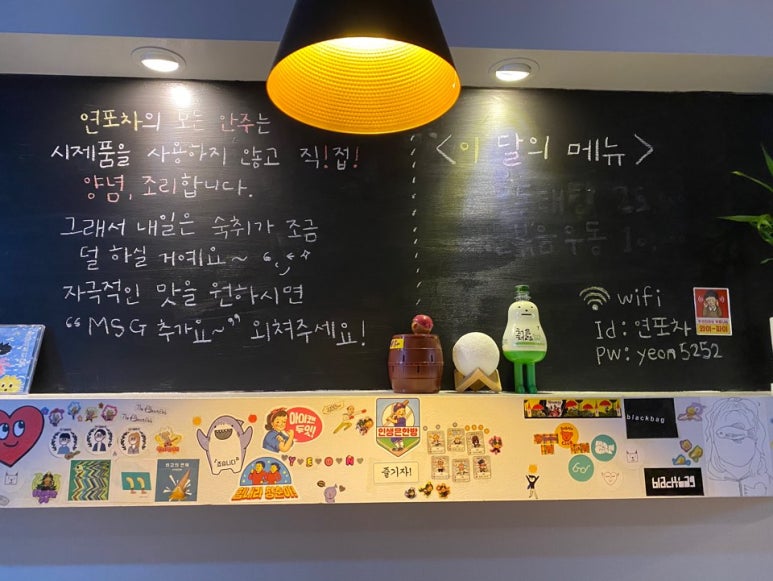 연포차의 모든 안주는
시제품을 사용하지 않고 직!접!
양념, 조리합니다.
그래서 내일은 숙취가 조금
덜 하실 거예요~
자극적인 맛을 원하시면
“MSG 추가요~” 외쳐주세요!
<이 달의 메뉴>
볶음우동
wifi
Id: 연포차
PW: yeon5252
와이-파이
아이캔두잇!
인생은한방
YEON
즐기자!
GO!
blackbag
blackbag